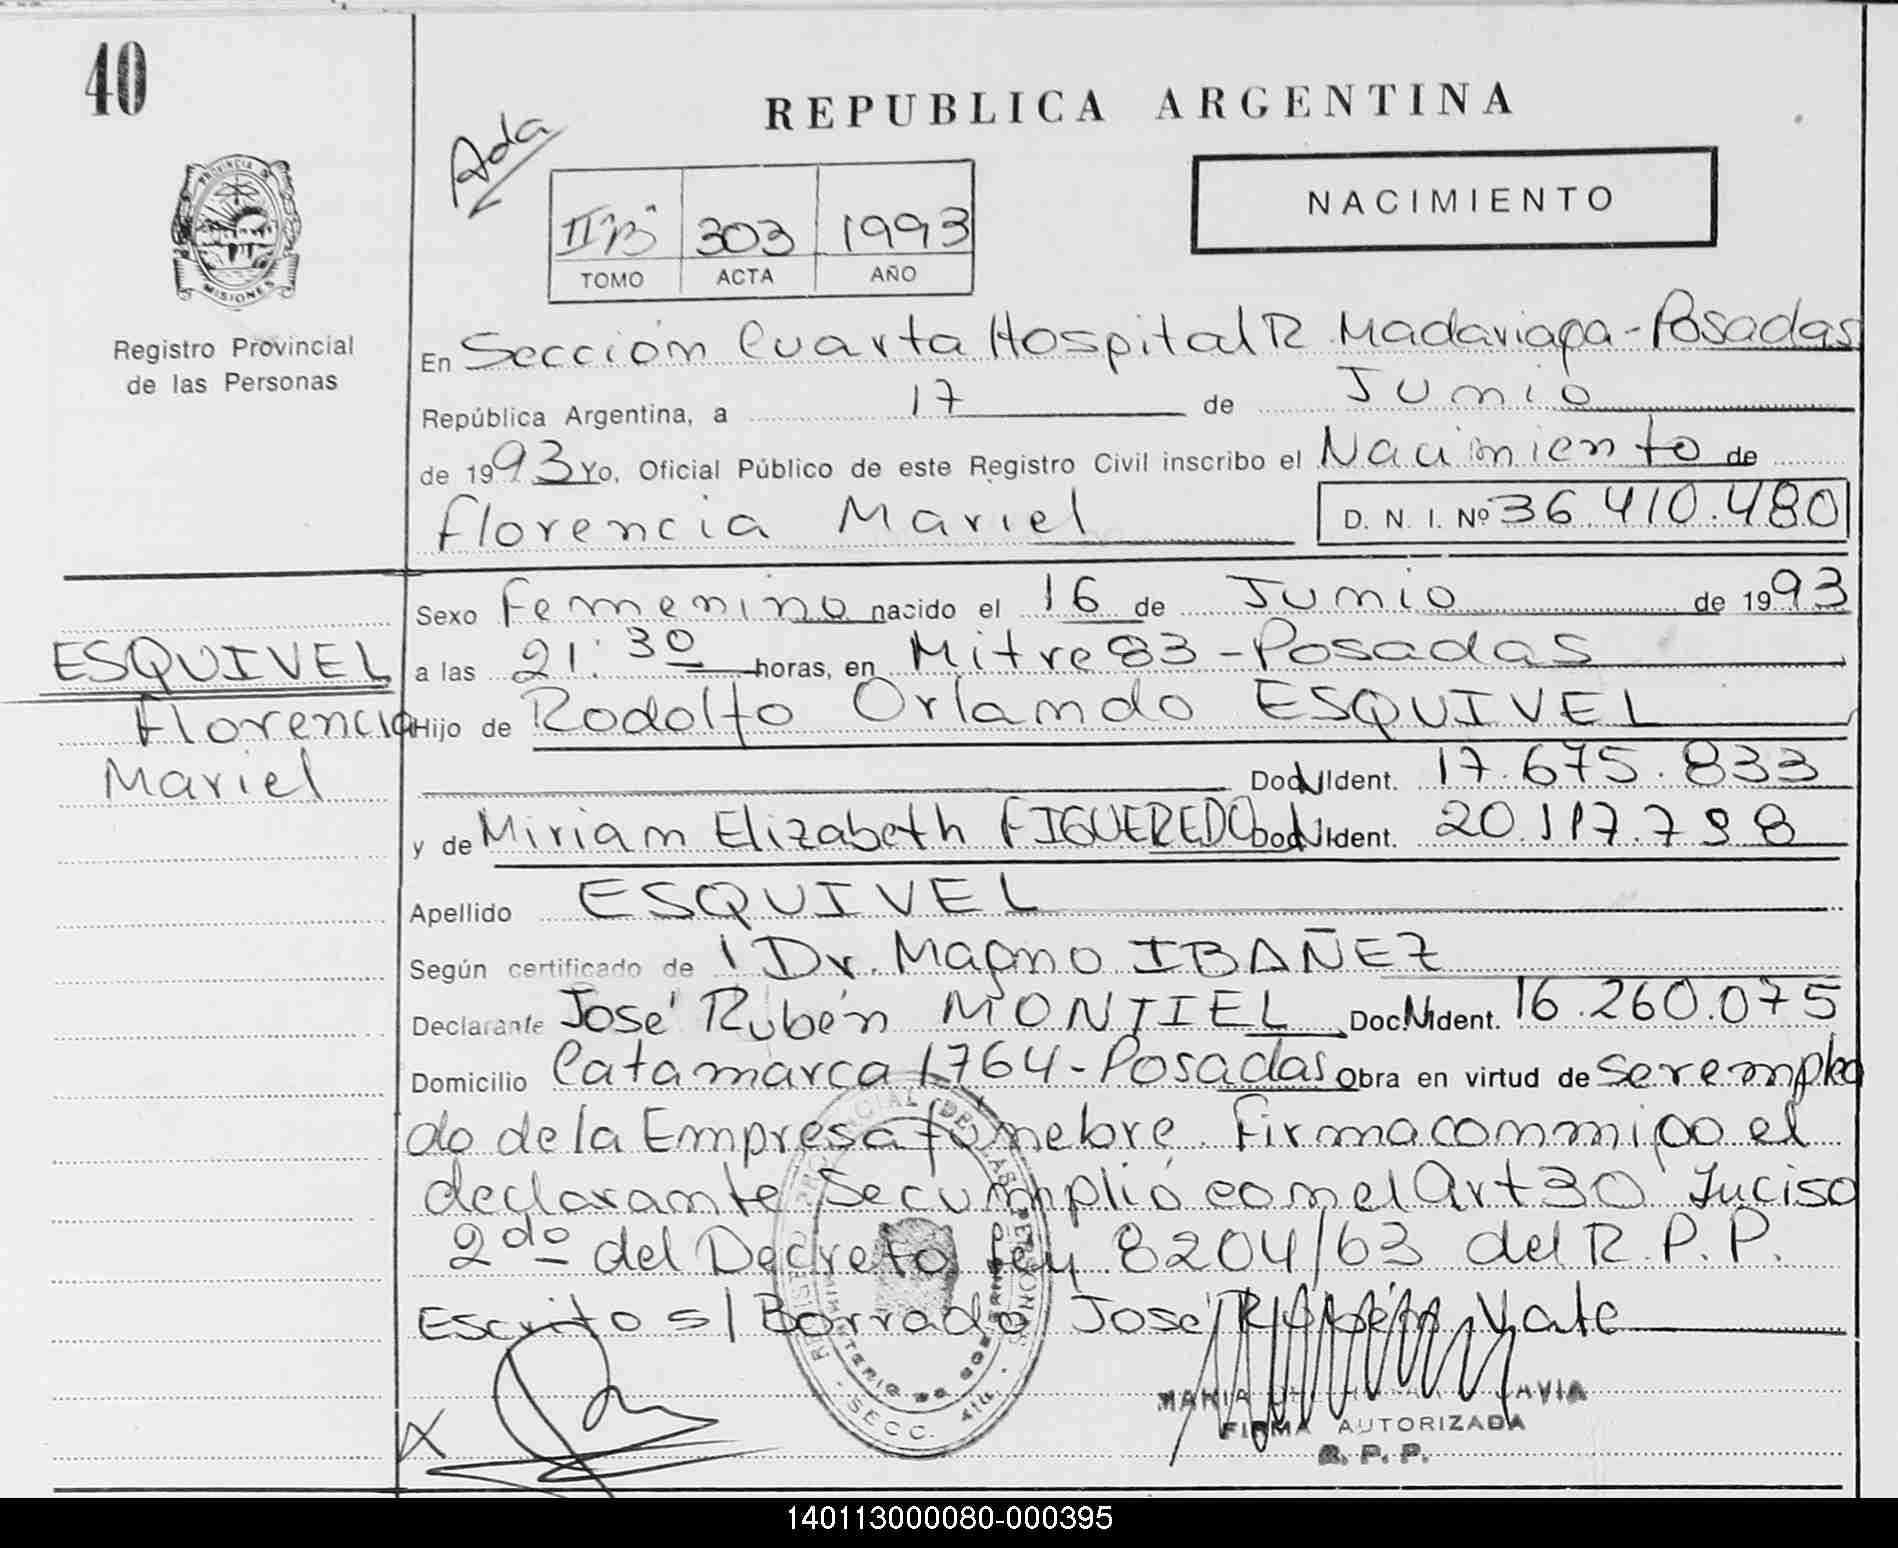 40
Ada
REPUBLICA ARGENTINA
NACIMIENTO
PROVINCIA DE
MISIONES
Registro Provincial
de las Personas
II "B" 303 1993
TOMO ACTA AÑO
En Sección Cuarta Hospital R. Madariaga - Posadas
República Argentina, a 17 de Junio
de 1993 Yo, Oficial Público de este Registro Civil inscribo el Nacimiento de
Florencia Mariel D. N. I. Nº 36.410.480
Sexo Femenino nacido el 16 de Junio de 1993
ESQUIVEL
Florencia
Mariel
a las 21:30 horas, en Mitre 83 - Posadas
Hijo de Rodolfo Orlando ESQUIVEL
Doc. Ident. 17.675.833
y de Miriam Elizabeth FIGUEREDO Doc. Ident. 20.117.798
Apellido ESQUIVEL
Según certificado de Dr. Magno IBAÑEZ
Declarante José Rubén MONTIEL Doc. Ident. 16.260.075
Domicilio Catamarca 1764 - Posadas Obra en virtud de ser emplea
do de la Empresa fúnebre. Firma conmigo el
declarante Se cumplió con el Art 30 Inciso
2do del Decreto Ley 8204/63 del R.P.P.
Escrito s/ Borrado José Rubén Vale
DE LAS PERSONAS
MINISTERIO DE GOBIERNO
SECC. 4ta.
X
MARIA
FIRMA AUTORIZADA
R. P. P.
140113000080-000395